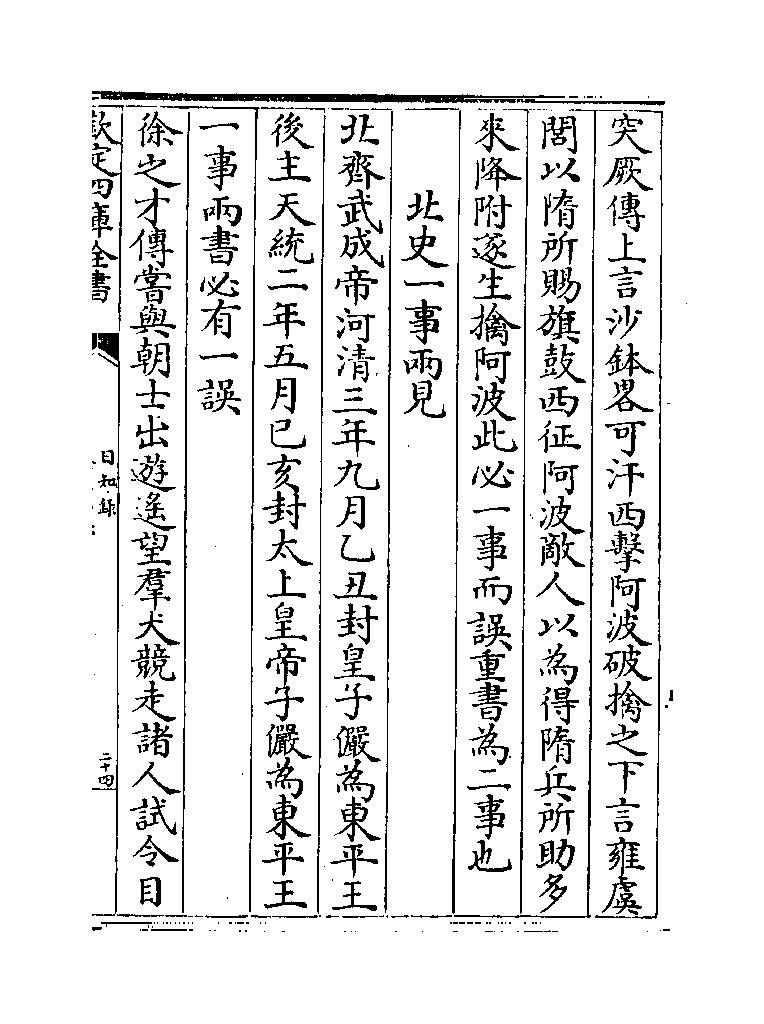 突厥傳上言沙鉢畧可汗西擊阿波破擒之下言雍虞
閭以隋所賜旗鼓西征阿波敵人以為得隋兵所助多
來降附遂生擒阿波此必一事而誤重書為二事也
北史一事兩見
北齊武成帝河清三年九月乙丑封皇子儼為東平王
後主天統二年五月己亥封太上皇帝子儼為東平王
一事兩書必有一誤
徐之才傳嘗與朝士出遊遙望羣犬競走諸人試令目
欽定四庫全書
日知錄
二十四